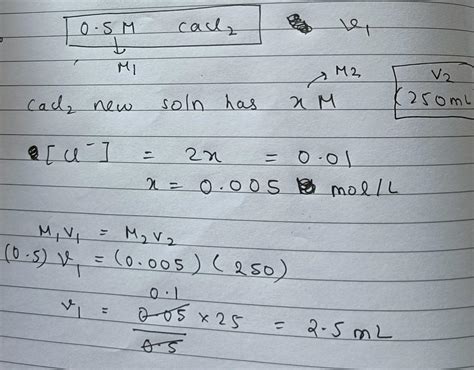 0.5M cacl2 v1
M1 M2
V2
cacl2 new soln has x M (250mL
[cl-] = 2x = 0.01
x = 0.005 mol/L
M1V1 = M2V2
(0.5) v1 = (0.005) (250)
0.1
v1 = 0.05 x 25 = 2.5mL
0.5